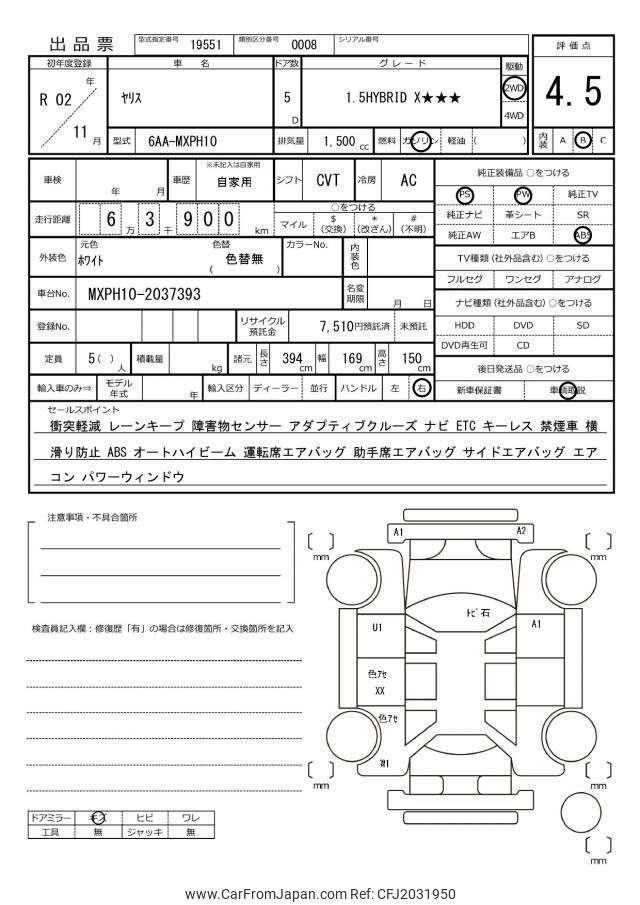 出品票 型式指定番号 19551 類別区分番号 0008 シリアル番号
評価点
4.5
内装 A B C
初年度登録 車名 ドア数 グレード 駆動
R 02 年 ヤリス 5 D 1.5HYBRID X★★★ 2WD
4WD
11 月 型式 6AA-MXPH10 排気量 1,500 cc 燃料 ガソリン 軽油 ( )
車検 年 月 車歴 ※未記入は自家用 自家用 シフト CVT 冷房 AC
走行距離 6 万 3 千 9 0 0 km
○をつける
マイル $ (交換) * (改ざん) # (不明)
外装色 元色 ホワイト 色替 ( 色替無 ) カラーNo. 内装色
車台No. MXPH10-2037393 名変期限 月 日
登録No. リサイクル預託金 7,510円預託済 未預託
定員 5( )人 積載量 kg 諸元 長さ 394 cm 幅 169 cm 高さ 150 cm
輸入車のみ⇒ モデル年式 年 輸入区分 ディーラー 並行 ハンドル 左 右
純正装備品 ○をつける
PS PW 純正TV
純正ナビ 革シート SR
純正AW エアB ABS
TV種類 (社外品含む) ○をつける
フルセグ ワンセグ アナログ
ナビ種類 (社外品含む) ○をつける
HDD DVD SD
DVD再生可 CD
後日発送品 ○をつける
新車保証書 車輌取説
セールスポイント
衝突軽減 レーンキープ 障害物センサー アダプティブクルーズ ナビ ETC キーレス 禁煙車 横
滑り防止 ABS オートハイビーム 運転席エアバッグ 助手席エアバッグ サイドエアバッグ エア
コン パワーウィンドウ
注意事項・不具合箇所
検査員記入欄：修復歴「有」の場合は修復箇所・交換箇所を記入
ドアミラー キズ ヒビ ワレ
工具 無 ジャッキ 無
A1 A2
mm mm
トビ石
U1 A1
色アセ
XX
色アセ
W1
mm mm
mm
www.CarFromJapan.com Ref: CFJ2031950